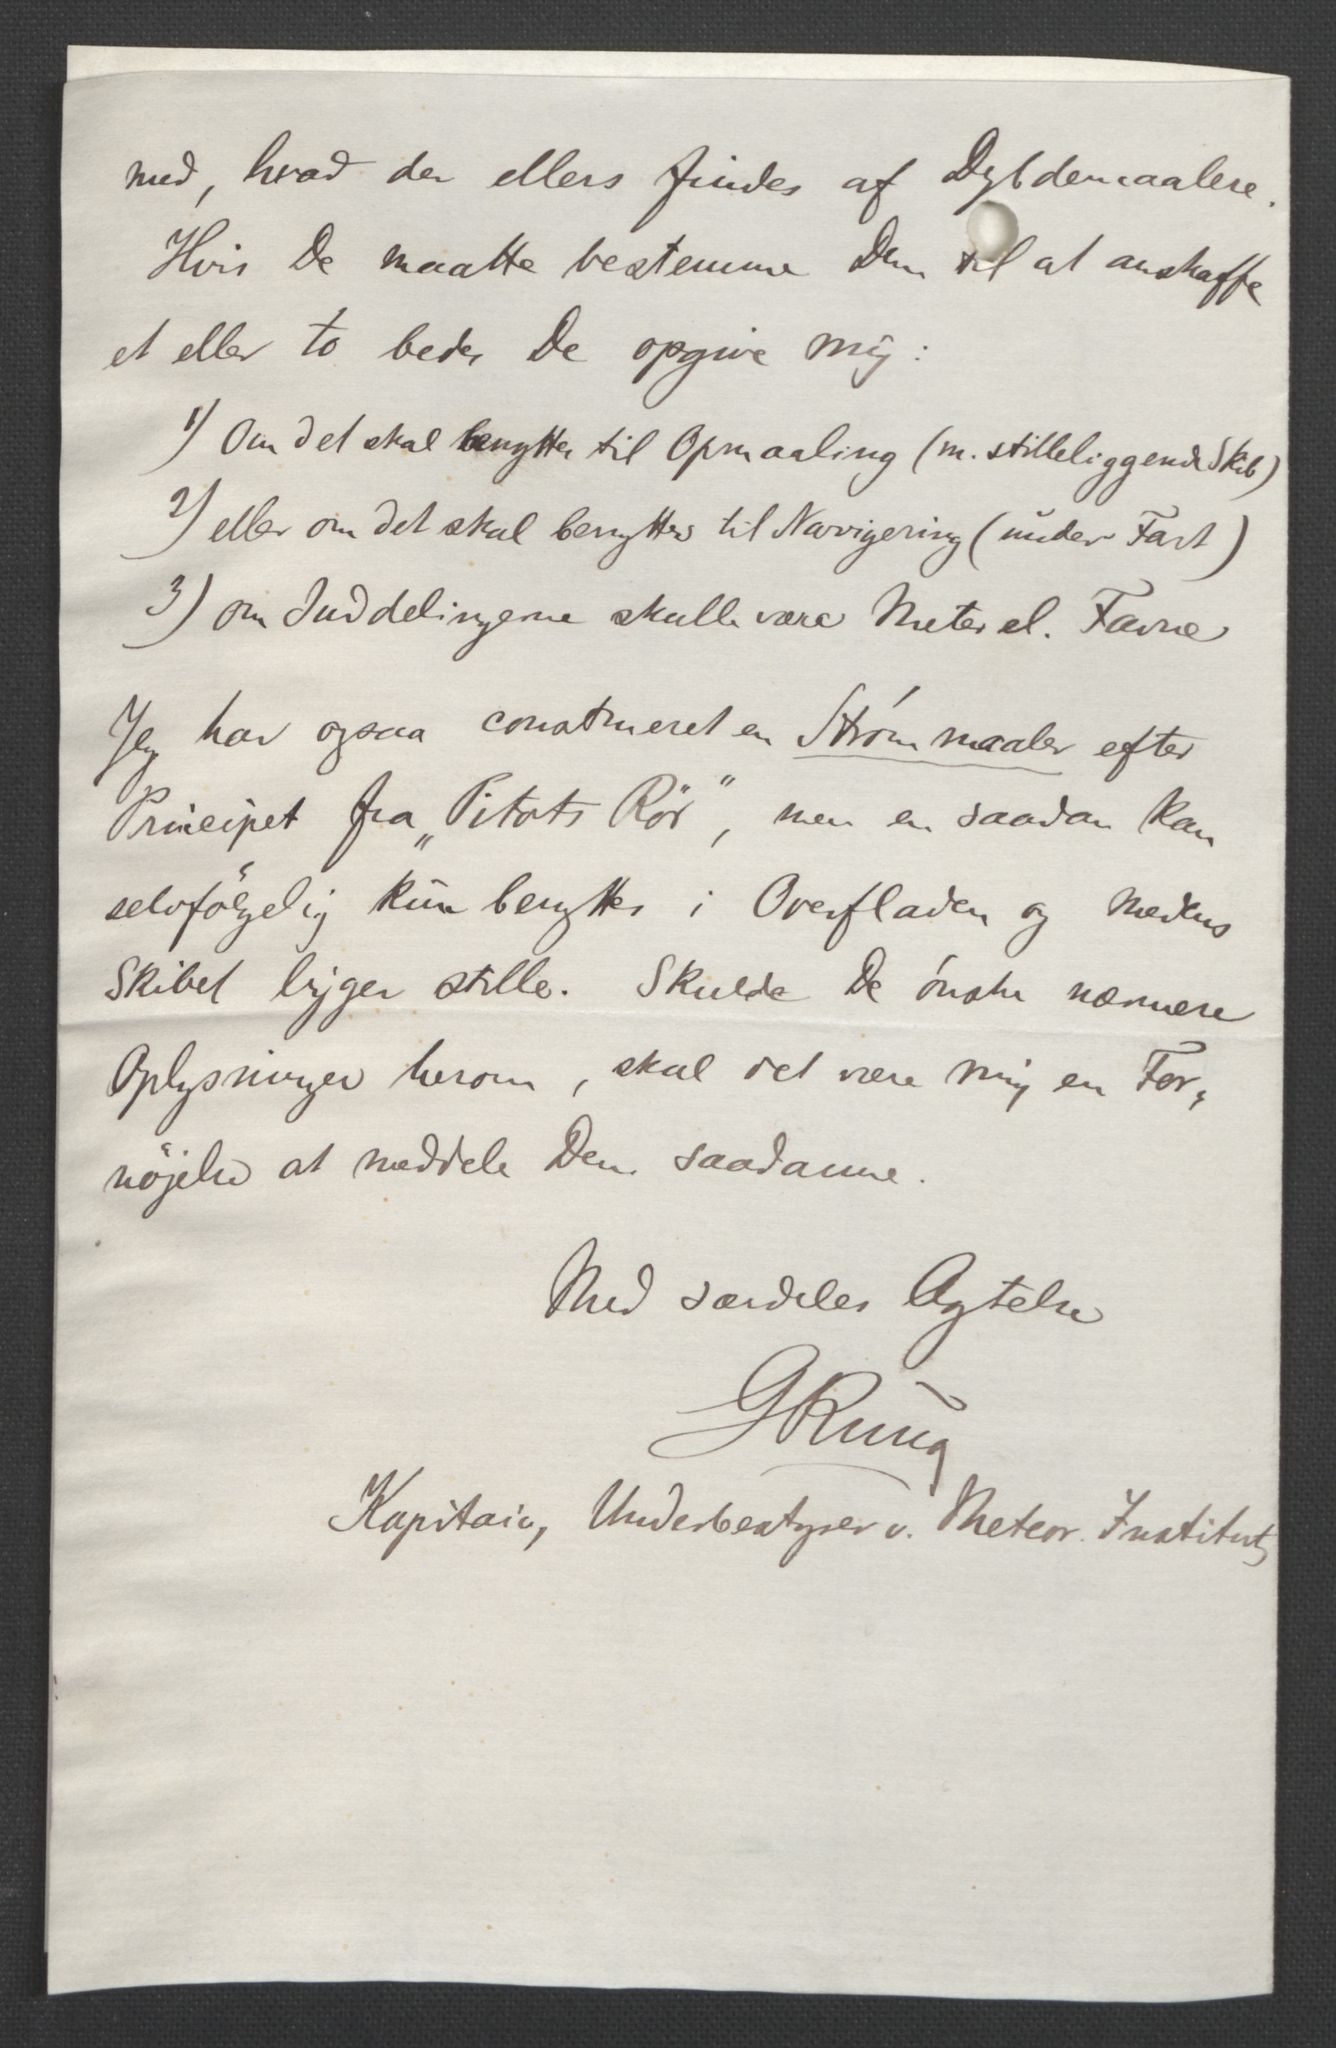 med, hvad der ellers findes af Dybdemaalere.
Hvis De maatte bestemme Dem til at anskaffe
et eller to bedes De opgive mig:
1) Om det skal benyttes til Opmaaling (m. stilleliggende Skib)
2) eller om det skal benyttes til Navigering (under Fart)
3) om Inddelingerne skulle være Meter el. Favne
Jeg har ogsaa construeret en Strømmaaler efter
Principet fra „Pitots Rör”, men en saadan kan
selvfölgelig kun benyttes i Overfladen og medens
Skibet ligger stille. Skulde De ønske nærmere
Oplysninger herom, skal det være mig en For„
nöjelse at meddele Dem saadanne.
Med særdeles Agtelse
G Rung
Kapitain, Underbestyrer v. Meteor. Institut